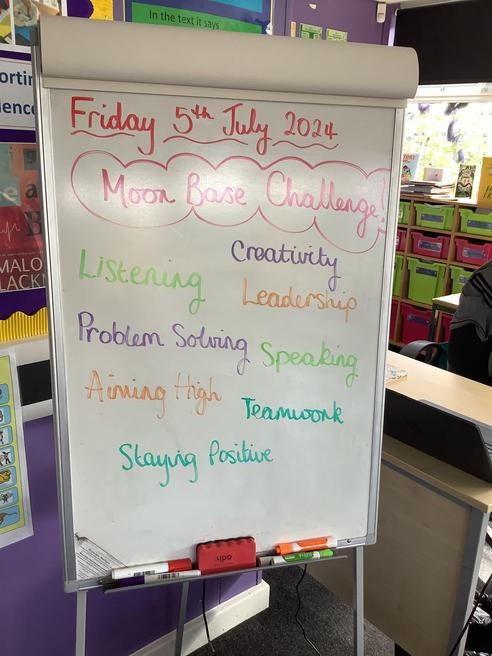 In the text it says
Friday 5th July 2024
Moon Base Challenge!
Creativity
Listening
Leadership
Problem Solving
Speaking
Aiming High
Teamwork
Staying Positive